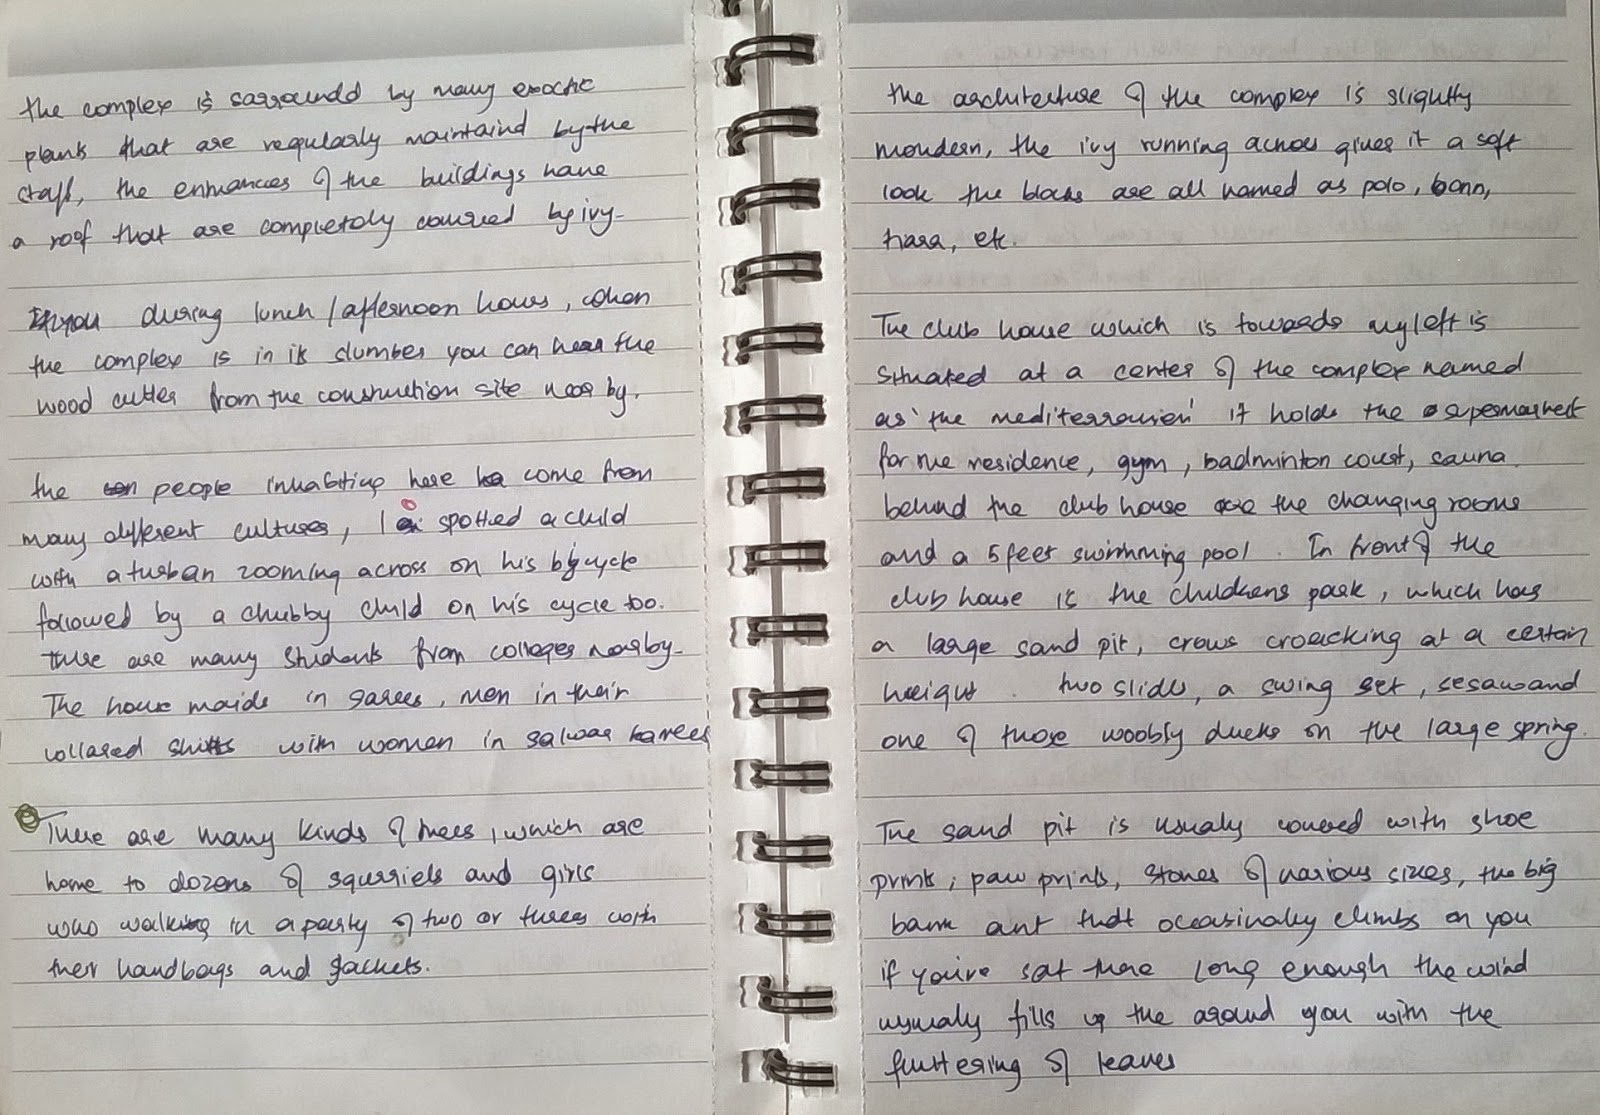 the complex is sarroundd by many exoctic
plants that are regularly maintaind by the
staff, the entrances of the buildings have
a roof that are completely covered by ivy.
during lunch / afternoon hours, when
the complex is in its slumber you can hear the
wood cutter from the construction site near by.
the people inhabiting here come from
many different cultures, I spotted a child
with a turban zooming across on his bicycle
followed by a chubby child on his cycle too.
there are many students from colleges nearby.
The house maids in sarees, men in their
collared shirts with women in salwar
There are many kinds of trees, which are
home to dozens of squrriels and girls
who walking in a party of two or threes with
their handbags and jackets.
the architecture of the complex is slightly
mondern, the ivy running across gives it a soft
look the blocks are all named as polo, bonn,
hara, etc.
The club house which is towards my left is
situated at a center of the complex named
as 'the mediterranien' it holds the supermarket
for the residence, gym, badminton court, sauna.
behind the club house are the changing rooms
and a 5 feet swimming pool. In front of the
club house is the childrens park, which has
a large sand pit, crows croacking at a certain
height. two slides, a swing set, sesaw and
one of those woobly ducks on the large spring.
The sand pit is usualy covered with shoe
prints, paw prints, stones of various sizes, the big
ant that occasinaly climbs on you
if you're sat there long enough the wind
usualy fills up the around you with the
fluttering of leaves